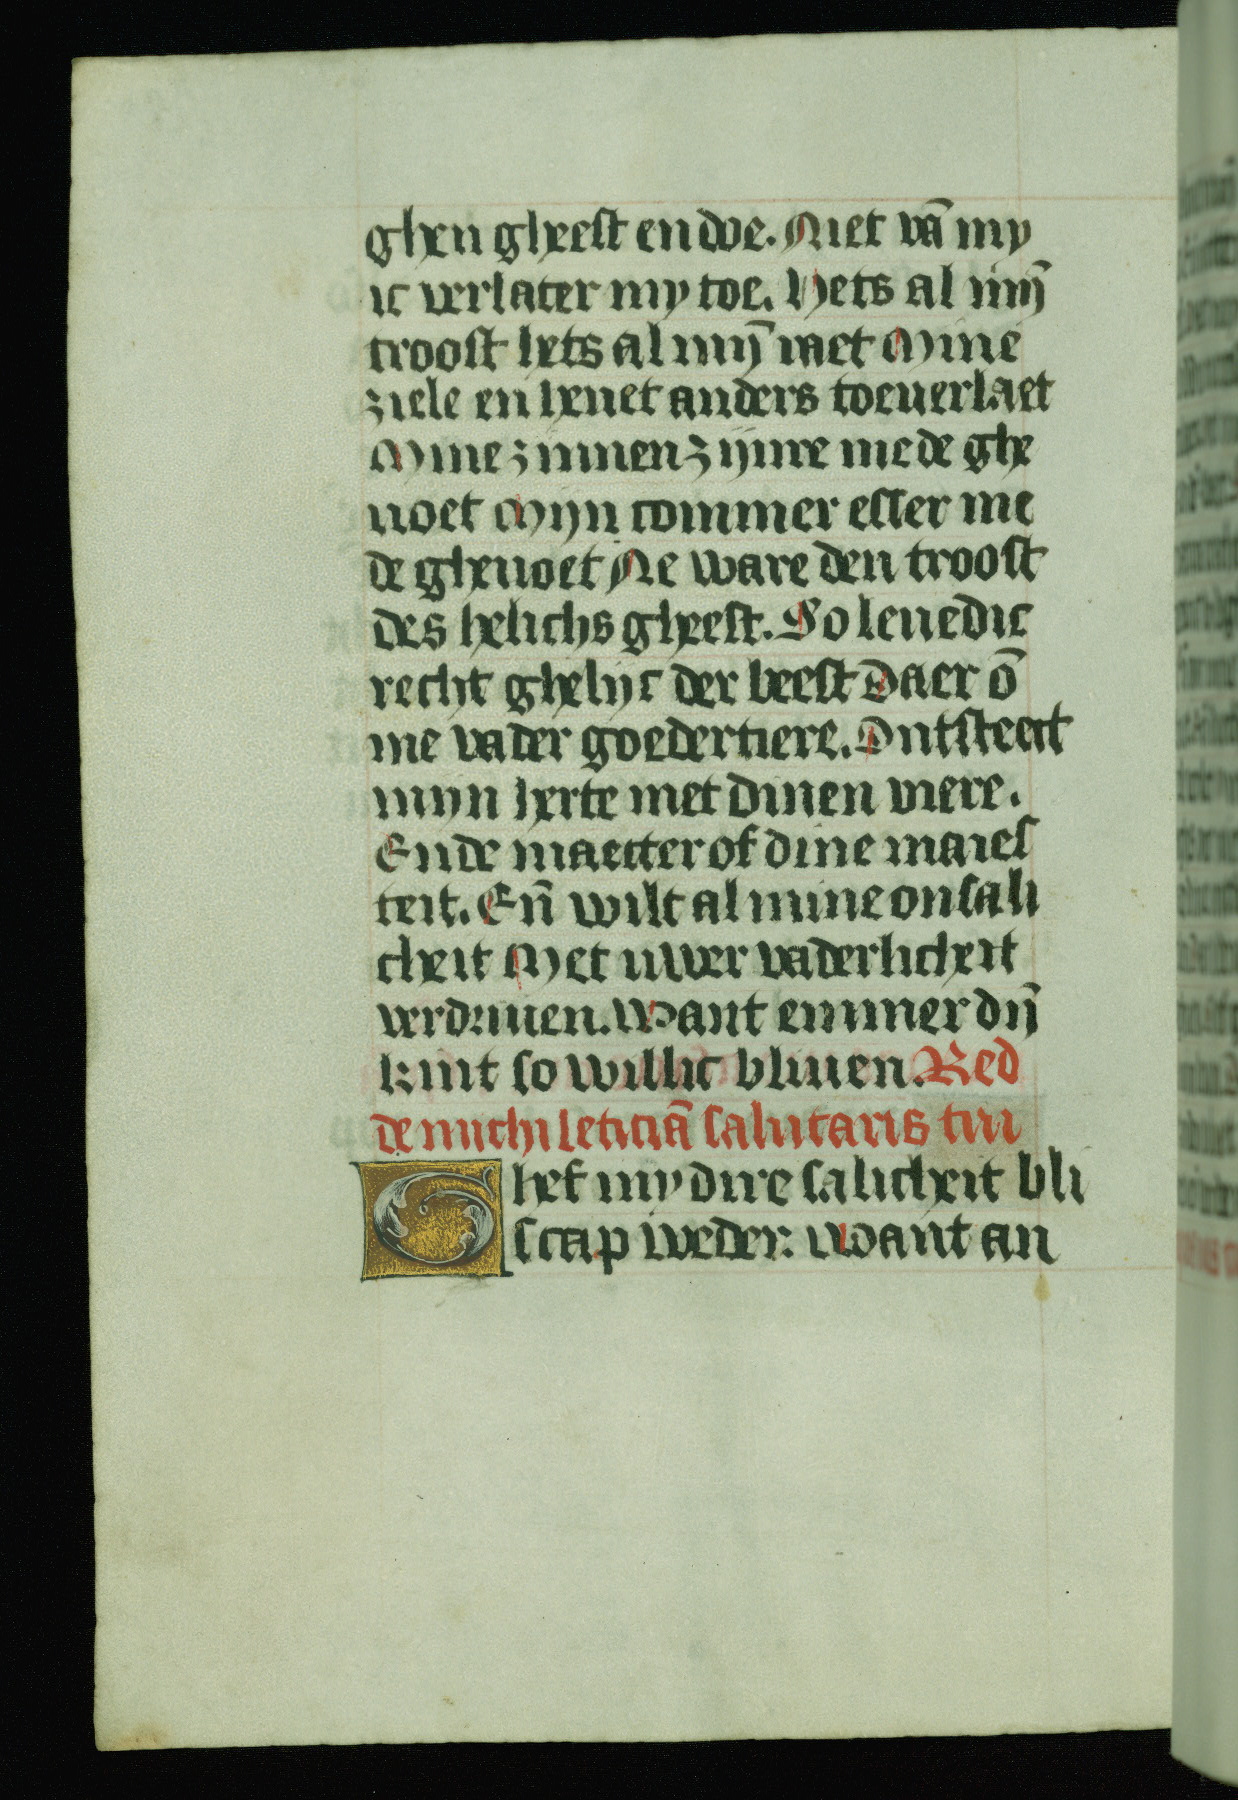 ghen gheest en doe. Niet vā my
ic verlater my toe. Hets al mijn̄
troost hets al mijn̄ raet Mine
ziele en heuet anders toeuerlaet
Mine zinnen zijnre mede ghe
uoet Mijn commer esser me
de gheuoet Ne ware den troost
des helichs gheest. So leuedic
recht ghelijc der beest Daer ō
me vader goedertiere. Ontsteect
mijn herte met dinen viere.
Ende maecter of dine maies
teit. Eñ wilt al mine onsali
cheit Met uwer vaderlicheit
verdriuen. Want emmer dijn̄
kint so willic bliuen. Red
de michi leticiā salutaris tui
Ghef my dire salicheit bli
scap weder. want an